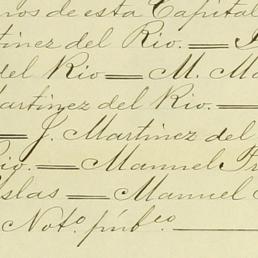 ros de esta Capital
tinez del Rio.=
del Rio= M. Ma
artinez del Rio.=
= J. Martinez del
Rio.= Manuel Pr
Yslas= Manuel
Not.º púb.co